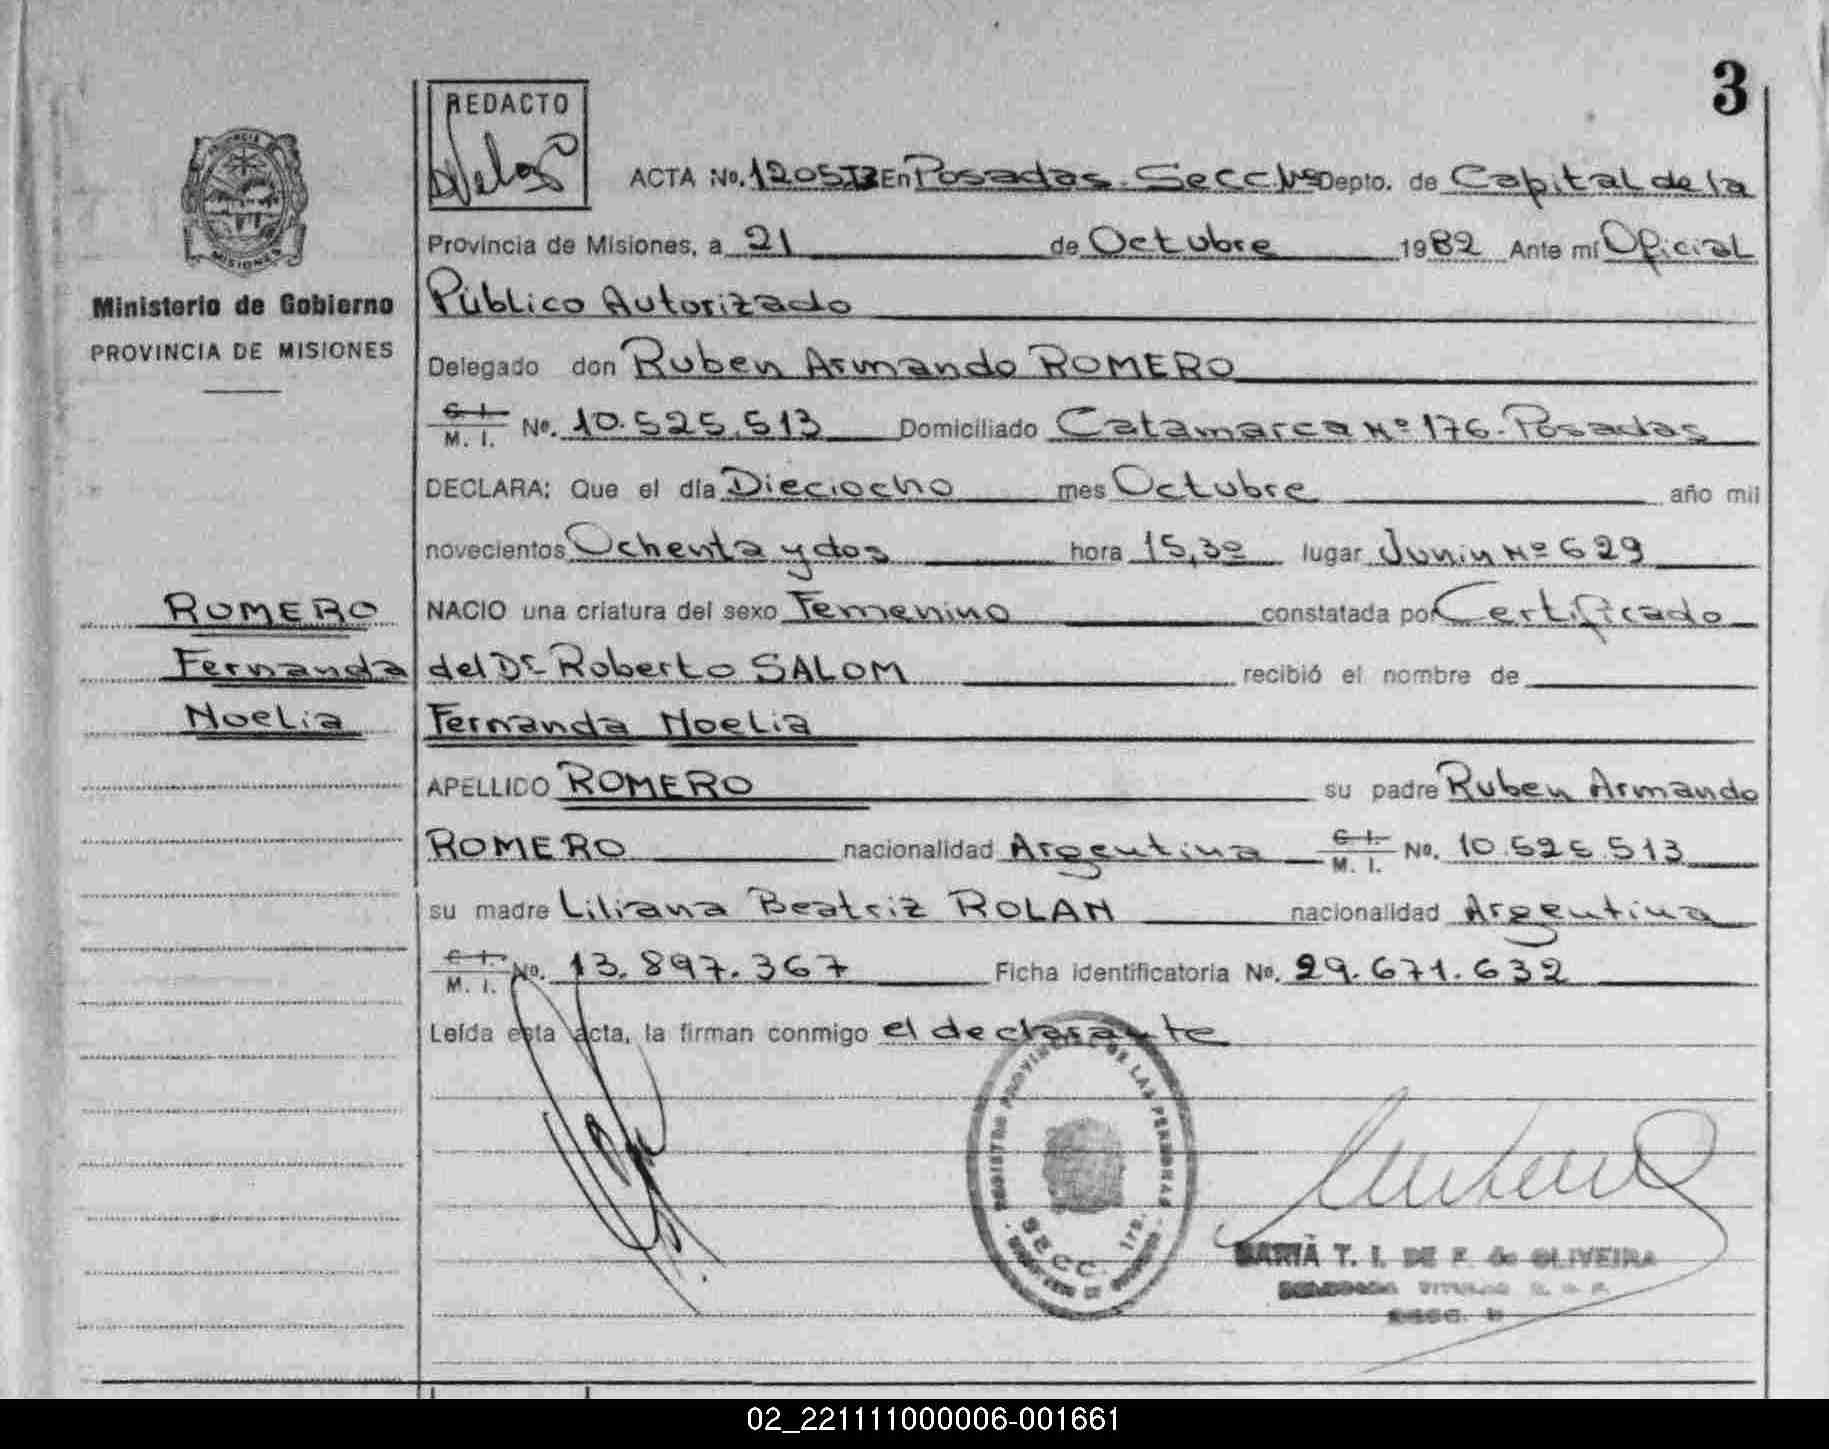 3
REDACTO
ACTA No. 1205 En Posadas - Secc Depto. de Capital de la
Provincia de Misiones, a 21 de Octubre 1982 Ante mí Oficial
Ministerio de Gobierno
Público Autorizado
PROVINCIA DE MISIONES
Delegado don Ruben Armando ROMERO
C. I.
M. I. No. 10.525.513 Domiciliado Catamarca Nº 176 - Posadas
DECLARA: Que el día Dieciocho mes Octubre año mil
novecientos Ochenta y dos hora 15,30 lugar Junin Nº 629
ROMERO
Fernanda
Noelia
NACIO una criatura del sexo Femenino constatada por Certificado
del Dr Roberto SALOM recibió el nombre de
Fernanda Noelia
APELLIDO ROMERO su padre Ruben Armando
ROMERO nacionalidad Argentina C. I.
M. I. No. 10.525.513
su madre Liliana Beatriz ROLAN nacionalidad Argentina
C. I.
M. I. No. 13.897.367 Ficha identificatoria No. 29.671.632
Leída esta acta, la firman conmigo el declarante
REGISTRO PROVINCIAL DE LAS PERSONAS
SECC.
MARIA T. I. DE F. de OLIVEIRA
DELEGADA TITULAR
SECC.
MISIONES
02_221111000006-001661